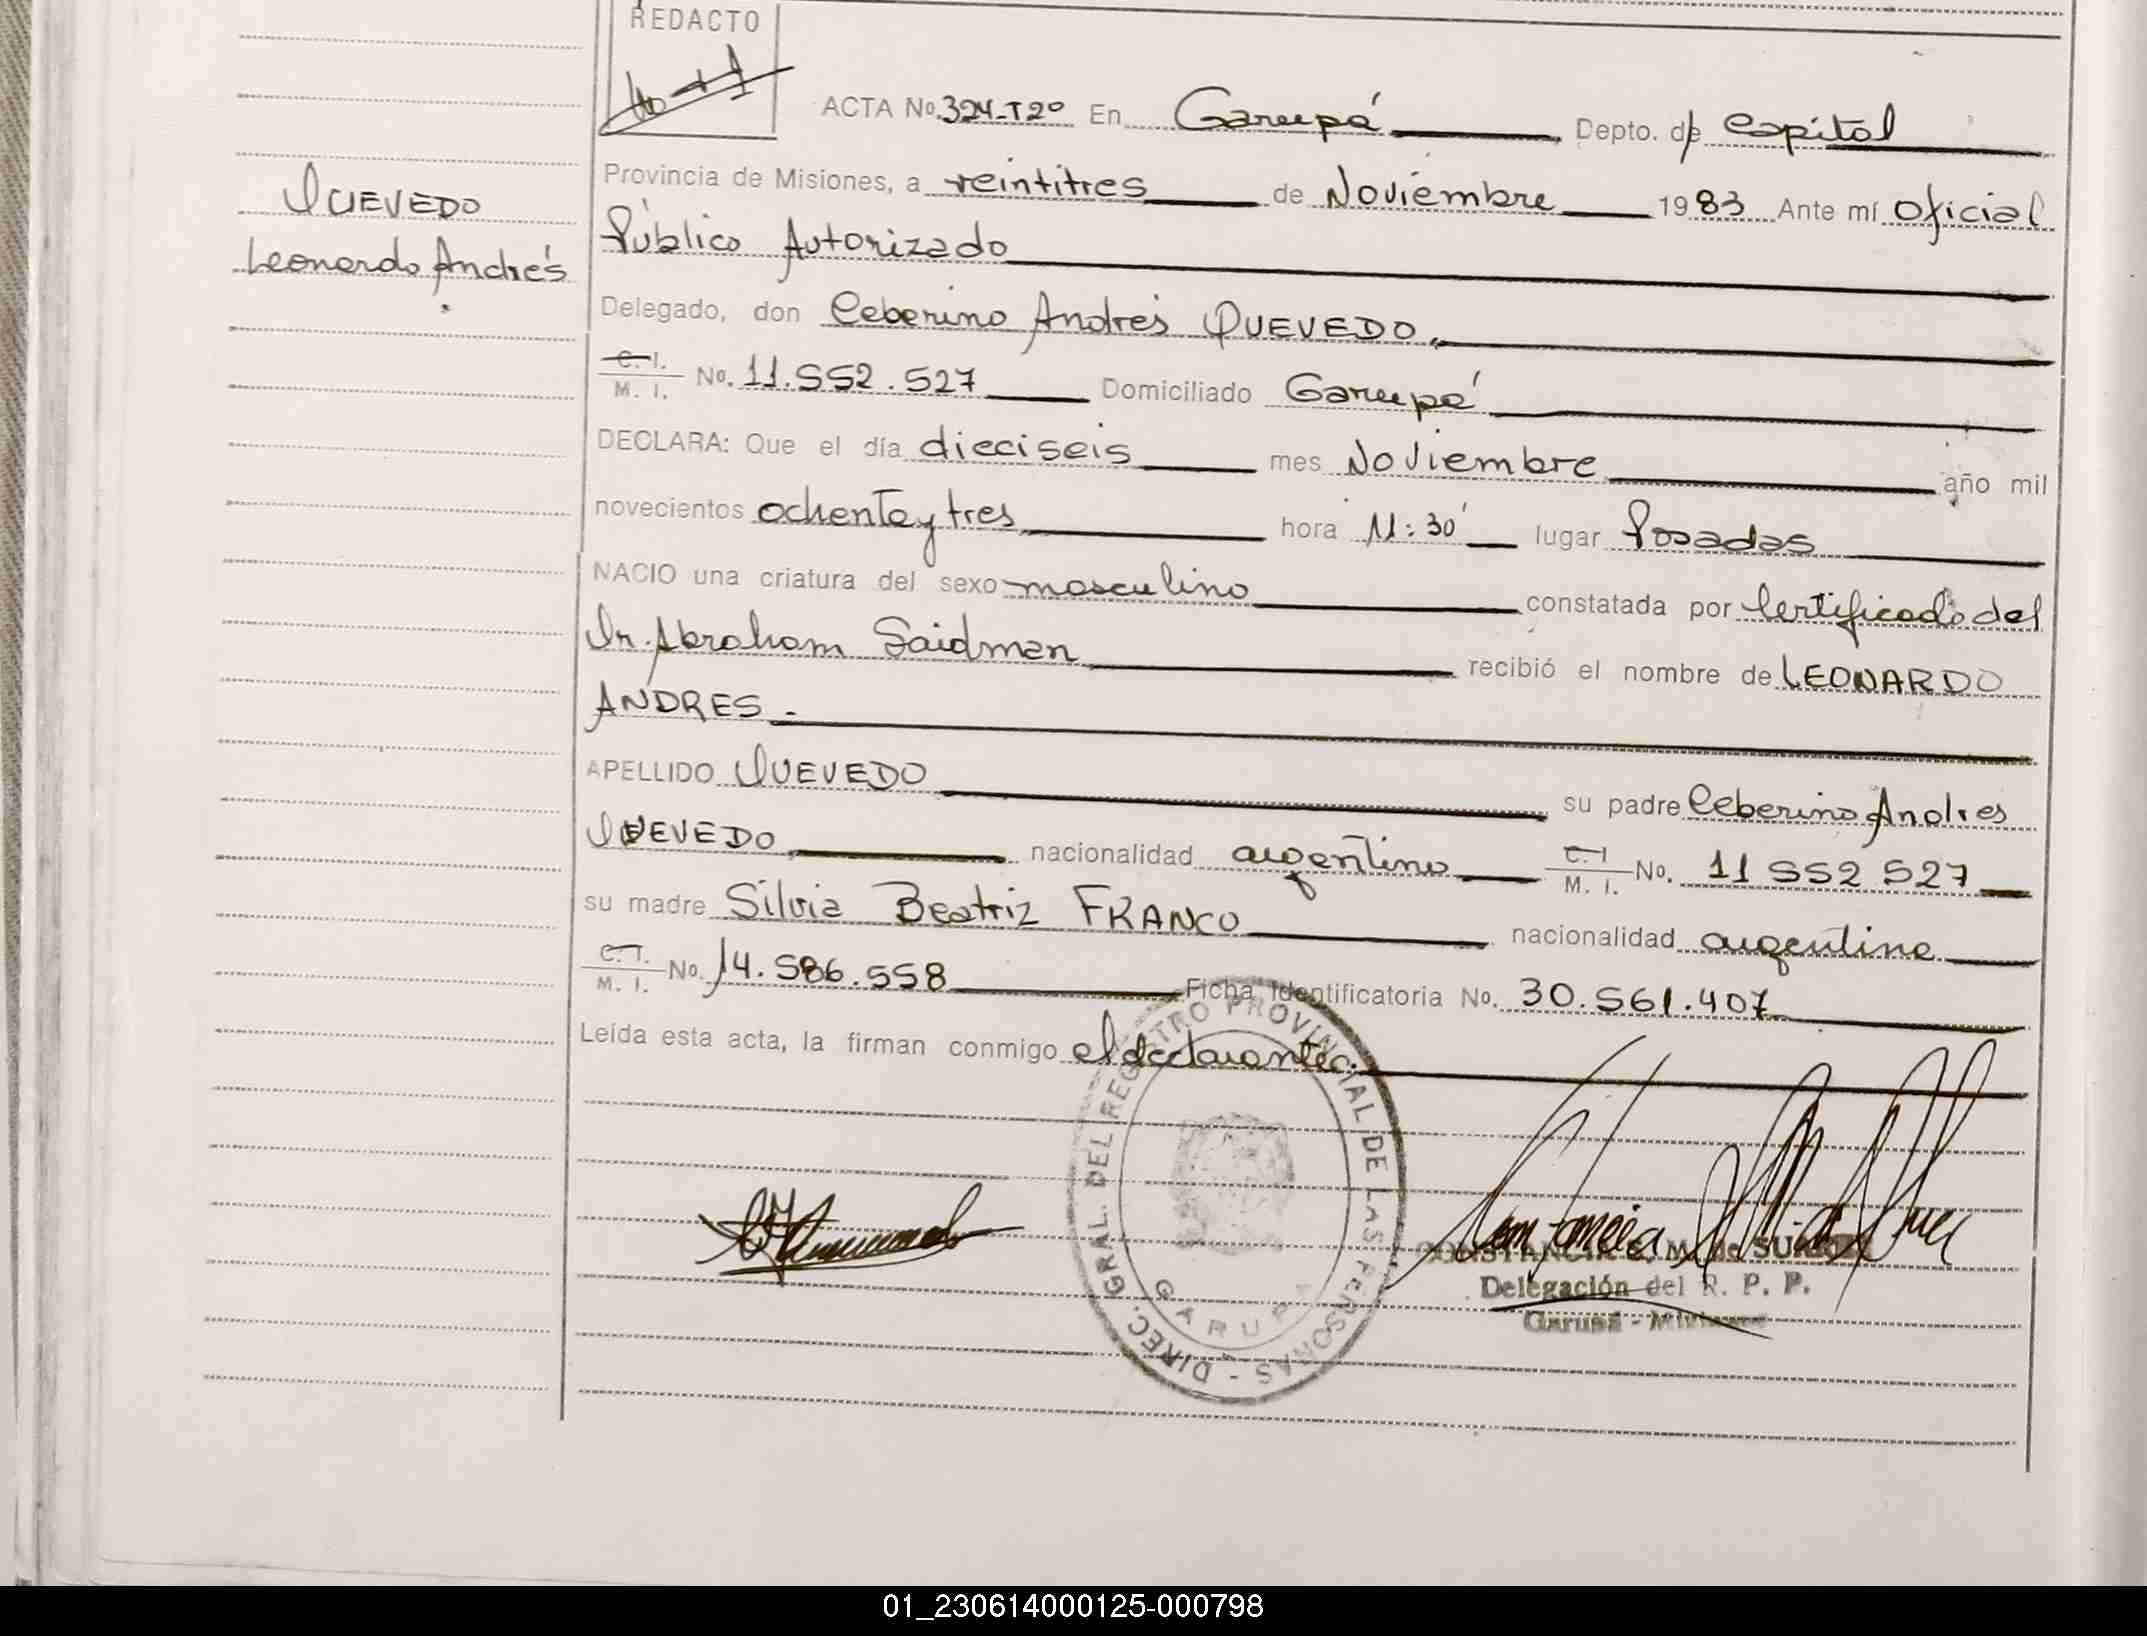 REDACTO
ACTA No. 324-T2º En Garupá Depto. de Capital
QUEVEDO
Leonardo Andrés
Provincia de Misiones, a veintitres de Noviembre 1983 Ante mí Oficial
Público Autorizado
Delegado, don Ceberino Andrés QUEVEDO
C. I. / M. I. No. 11.552.527 Domiciliado Garupá
DECLARA: Que el día dieciseis mes Noviembre año mil
novecientos ochenta y tres hora 11:30' lugar Posadas
NACIO una criatura del sexo masculino constatada por Certificado del
Dr. Abraham Saidman recibió el nombre de LEONARDO
ANDRES.-
APELLIDO QUEVEDO su padre Ceberino Andres
QUEVEDO nacionalidad argentino C. I / M. I. No. 11 552 527
su madre Silvia Beatriz FRANCO nacionalidad argentina
C. I. / M. I. No. 14.586.558 Ficha Identificatoria No. 30.561.407
Leída esta acta, la firman conmigo el declarante.
DIREC. GRAL. DEL REGISTRO PROVINCIAL DE LAS PERSONAS -
GARUPA
CONSTANCIA M. de
Delegación del R. P. P.
Garupá - Misiones
01_230614000125-000798